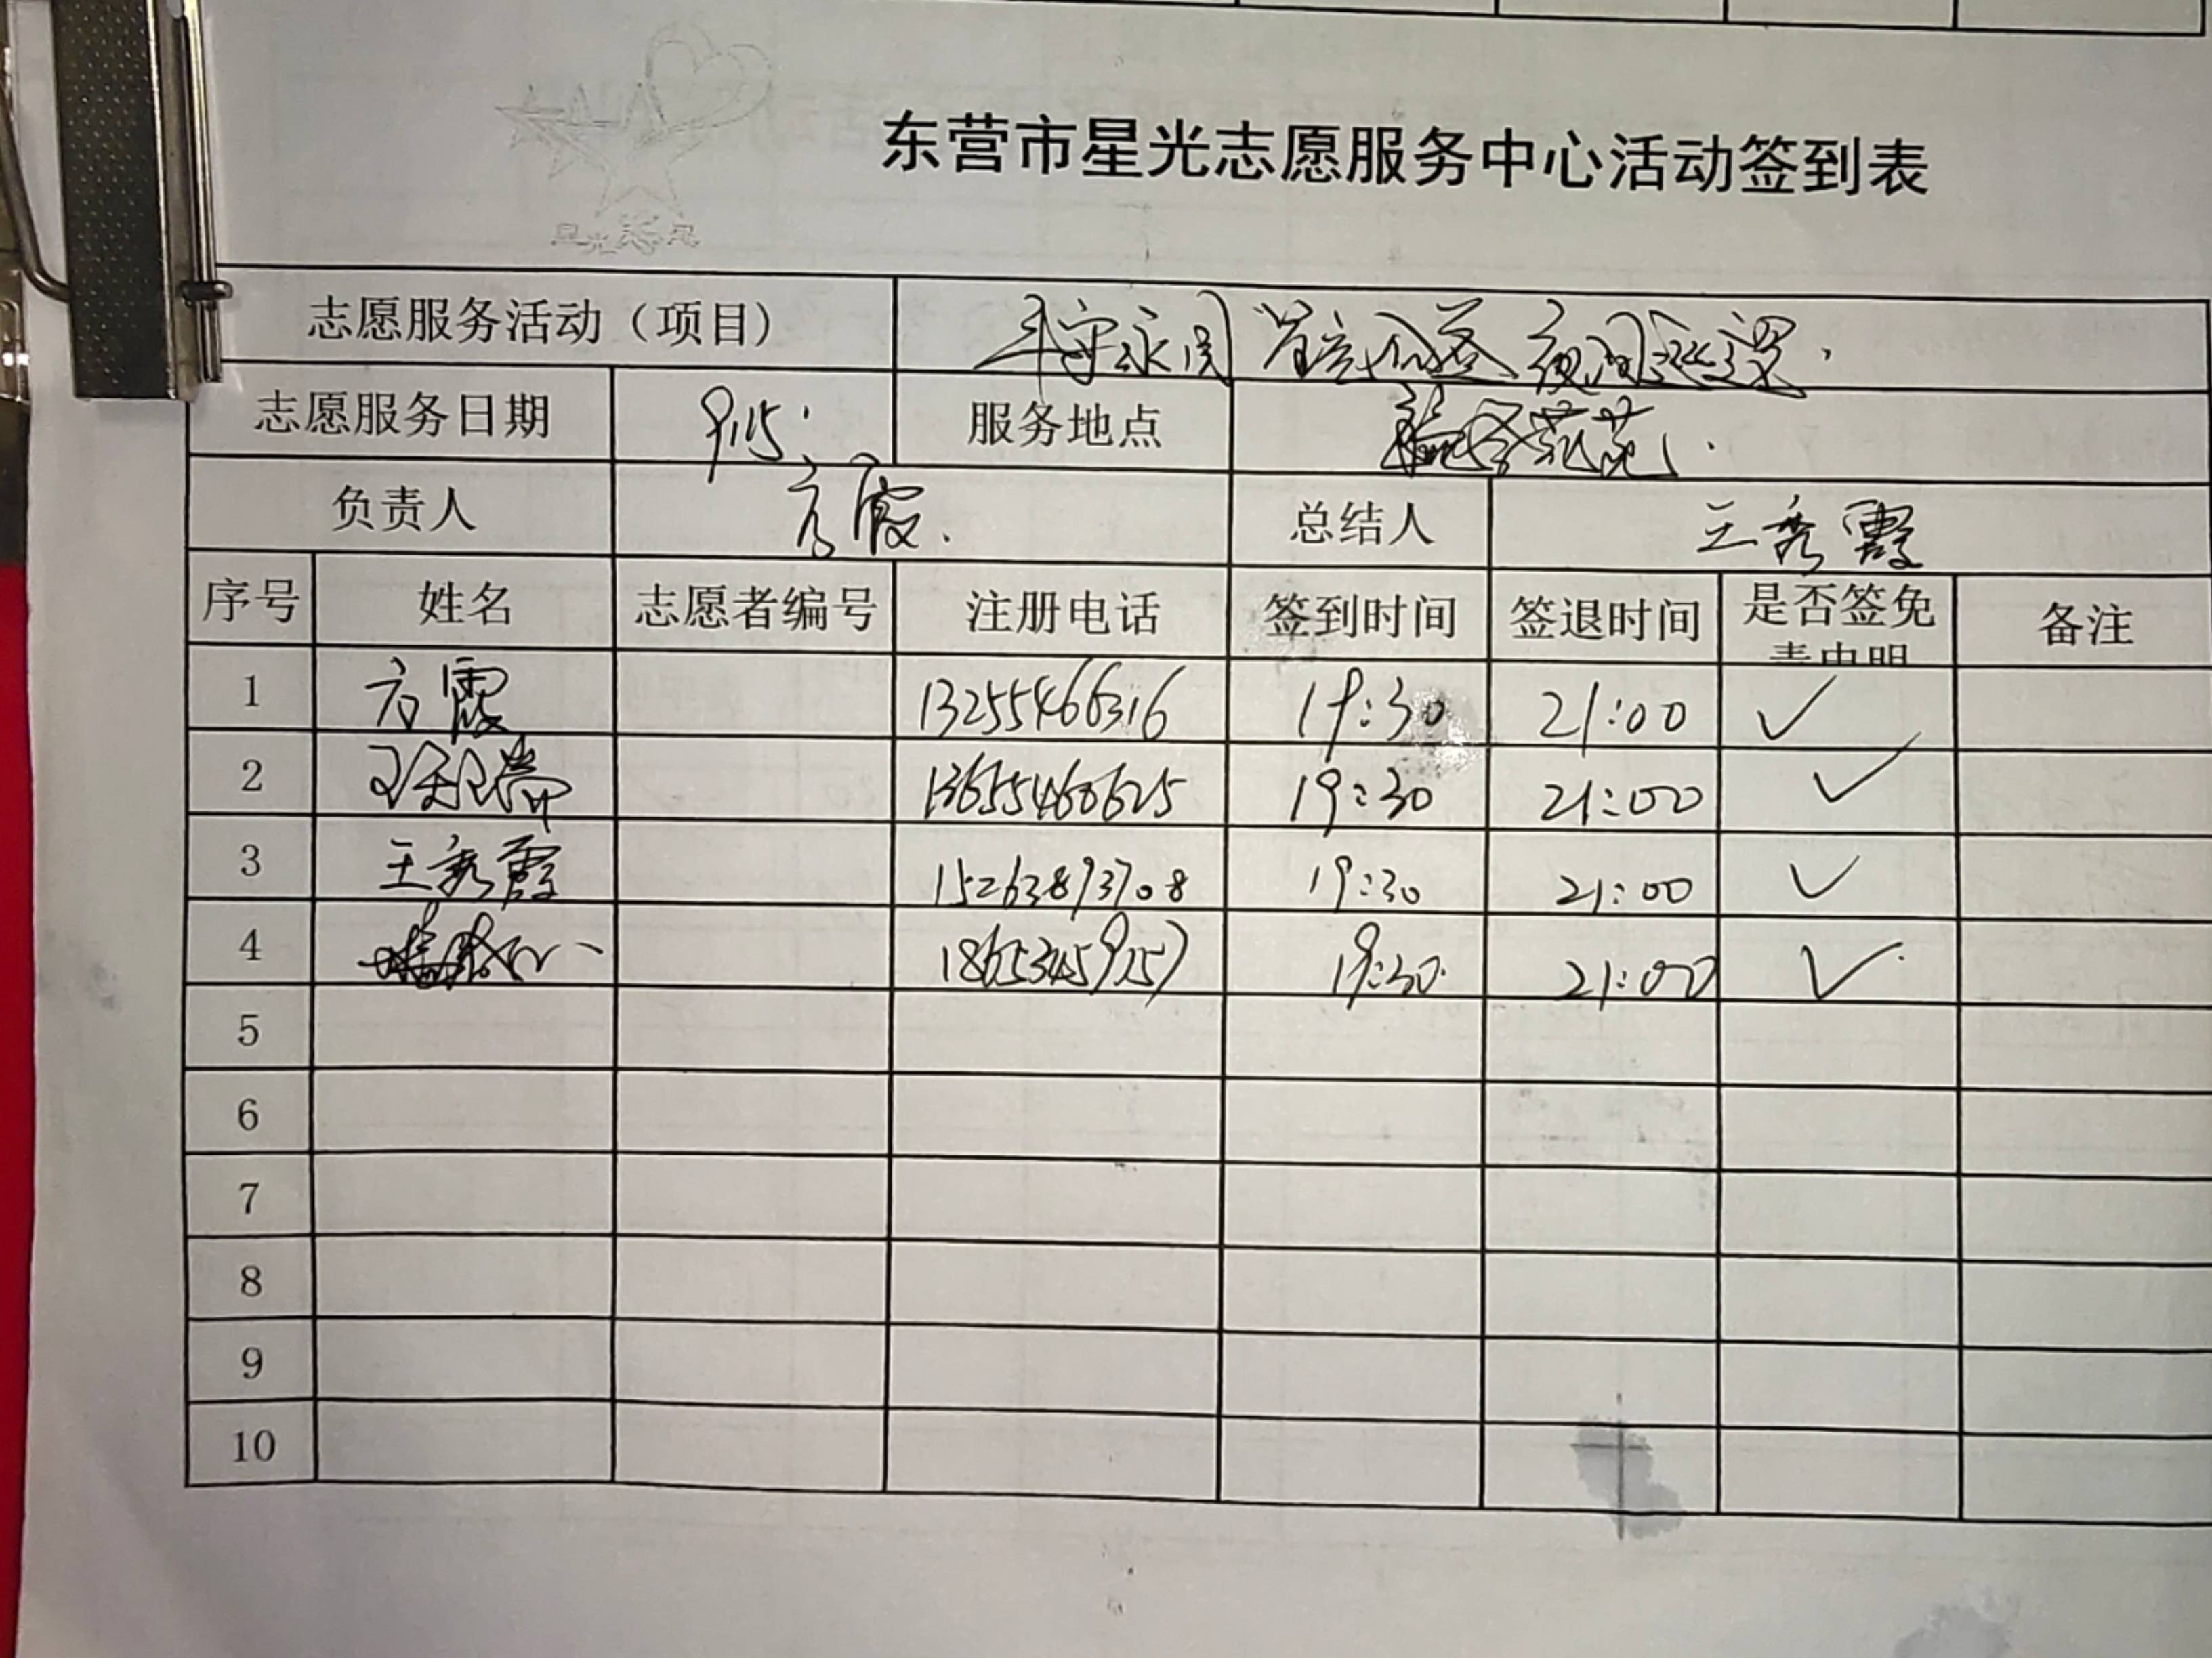 东营市星光志愿服务中心活动签到表
志愿服务活动（项目）
志愿服务日期 9.15. 服务地点
负责人 方霞. 总结人 王秀霞
序号 姓名 志愿者编号 注册电话 签到时间 签退时间 是否签免责申明 备注
1 方霞 13255466316 19:30 21:00 ✓
2 19:30 21:00 ✓
3 王秀霞 15263893708 19:30 21:00 ✓
4 19:30 21:00 ✓
5
6
7
8
9
10